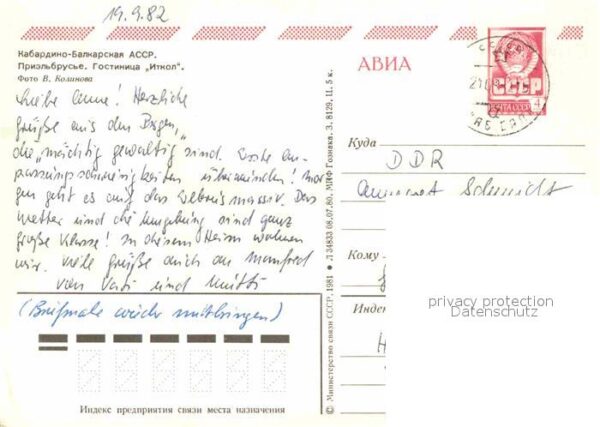 19.9.82
Кабардино-Балкарская АССР.
Приэльбрусье. Гостиница „Иткол".
Фото В. Колинова
АВИА
СССР
ПОЧТА СССР
4
Liebe Anne! Herzliche
Grüße aus den Bergen,
die „mächtig gewaltig sind. Erste An-
passungsschwierigkeiten überwunden! Mor-
gen geht es auf das Elbrusmassiv. Das
Wetter und die Umgebung sind ganz
große Klasse! In diesem Heim wohnen
wir. Viele Grüße auch an Manfred
von Vati und Mutti
(Briefmarke wieder mitbringen)
Куда
DDR
Annerose Schmidt
Кому
privacy protection
Datenschutz
Инде
Индекс предприятия связи места назначения
© Министерство связи СССР, 1981 ♦ Л 34833 08.07.80. МПФ Гознака. З. 8129. Ц. 5 к.